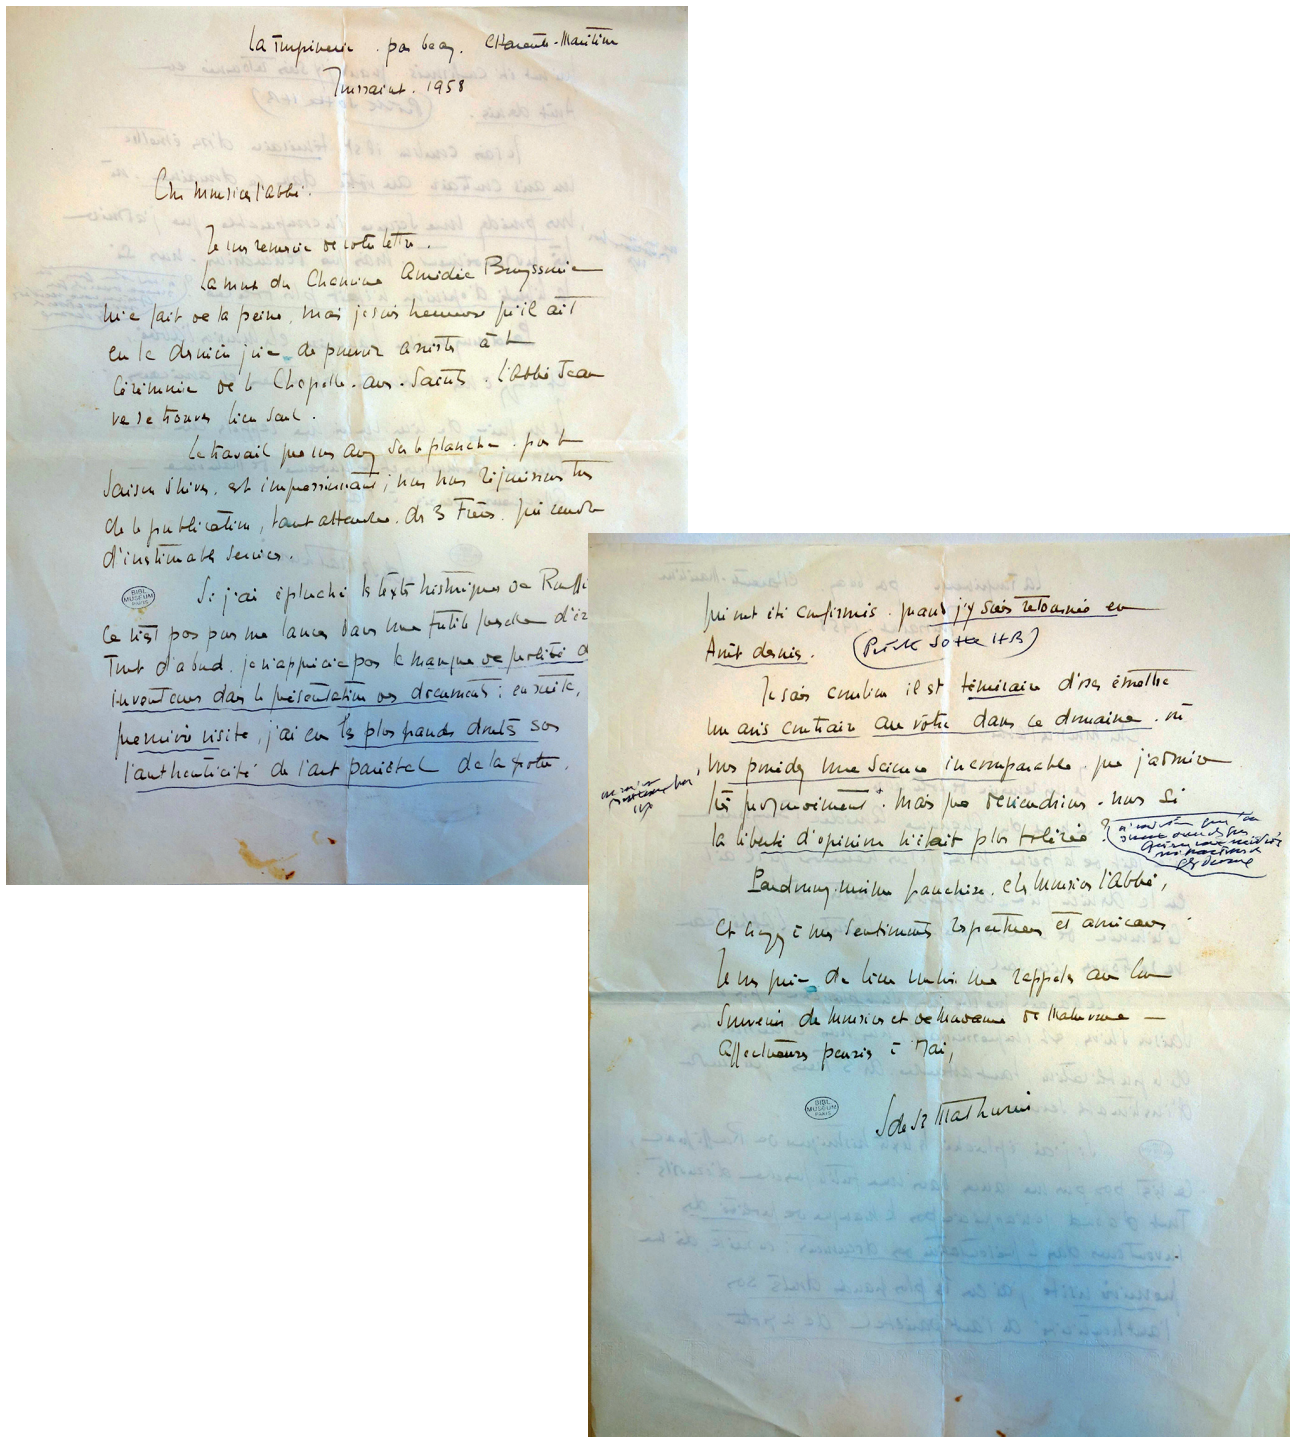 La Timpinerie . par Geay . Charente-Maritime
Toussaint . 1958
Cher Monsieur l'Abbé .
Je vous remercie de votre lettre .
La mort du Chanoine Amédée Bouyssonie
me fait de la peine , mais je suis heureuse qu'il ait
eu la dernière joie de pouvoir assister à la
Cérémonie de la Chapelle-aux-Saints . l'Abbé Jean
va se trouver bien seul .
Le travail que vous avez sur la planche . pour la
saison d'hiver . est impressionnant ; nous nous réjouissons tous
de la publication , tant attendue . des 3 Frères . qui rendra
d'inestimables services .
BIBL. MUSEUM PARIS
Si j'ai épluché les textes historiques de Rouffi
Ce n'est pas pour me lancer dans une futile
Tout d'abord . je n'apprécie pas le manque de probité d
inventeurs dans la présentation des documents ; ensuite ,
première visite , j'ai eu les plus grands doutes sur
l'authenticité de l'art pariétal de la grotte .
qui ont été confirmés . quand j'y suis retournée en
Août dernier . (
Je sais combien il est téméraire d'oser émettre
un avis contraire au vôtre dans ce domaine . où
vous possédez une science incomparable . que j'admire
très profondément . Mais que deviendrions-nous si
la liberté d'opinion n'était plus tolérée ?
Pardonnez-moi ma franchise , cher Monsieur l'Abbé ,
et croyez à mes sentiments respectueux et amicaux
Je vous prie de bien vouloir me rappeler au bon
souvenir de Monsieur et de Madame de
Affectueuses pensées à
BIBL. MUSEUM PARIS
S de St Mathurin